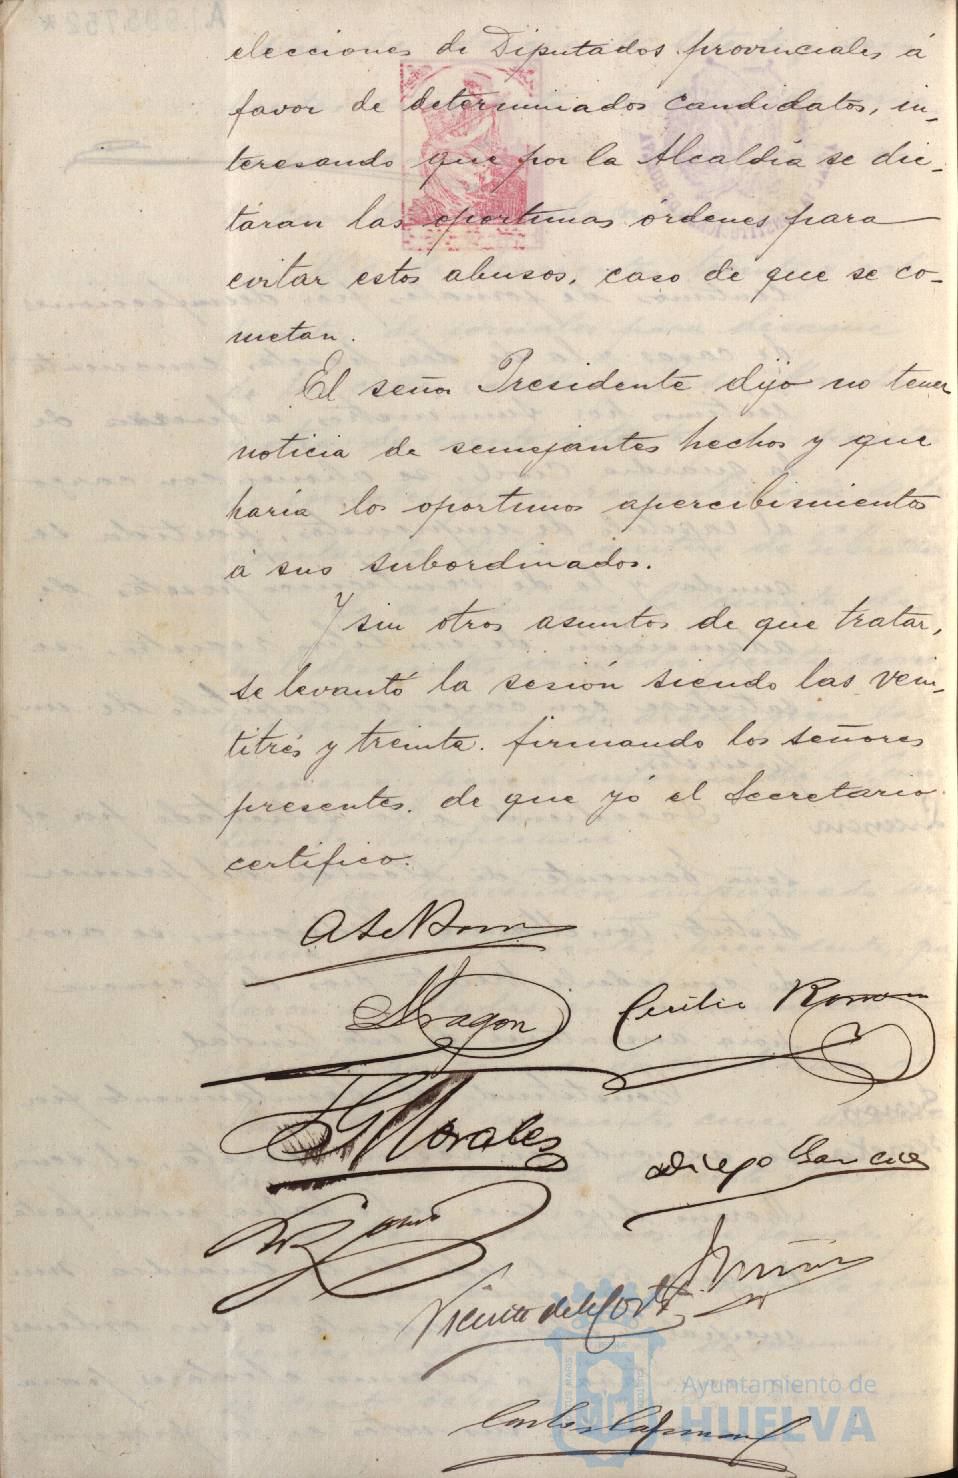 elecciones de Diputados provinciales á
favor de determinados candidatos, in-
teresando que por la Alcaldía se dic-
táran las oportunas órdenes para
evitar estos abusos, caso de que se co-
metan.
El señor Presidente dijo no tener
noticia de semejantes hechos y que
haría los oportunos apercibimientos
á sus subordinados.
Y sin otros asuntos de que tratar,
se levantó la sesión siendo las vein-
titrés y treinta. firmando los señores
presentes. de que yó el Secretario
certifico.
Aragon
Cecilio Romero
Morales
Diego Garcia
Vicente de la Corte
Muñoz
Carlos
Ayuntamiento de
HUELVA